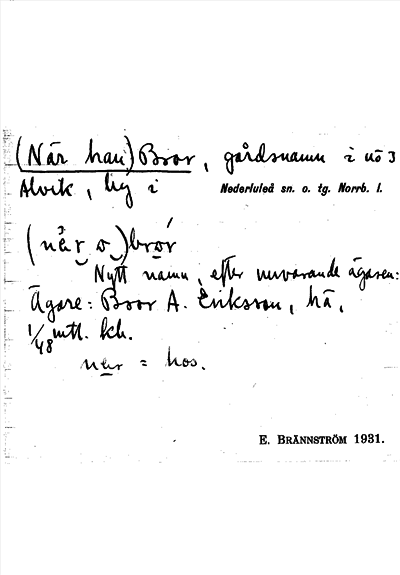 (När han) Bror, gårdsnamn i nö 3
Alvik, by i Nederluleå sn. o. tg. Norrb. l.
(nær o) bror
Nytt namn, efter nuvarande ägaren:
Ägare: Bror A. Eriksson, hä,
1/48 mtl. kh.
nær = hos.
E. BRÄNNSTRÖM 1931.